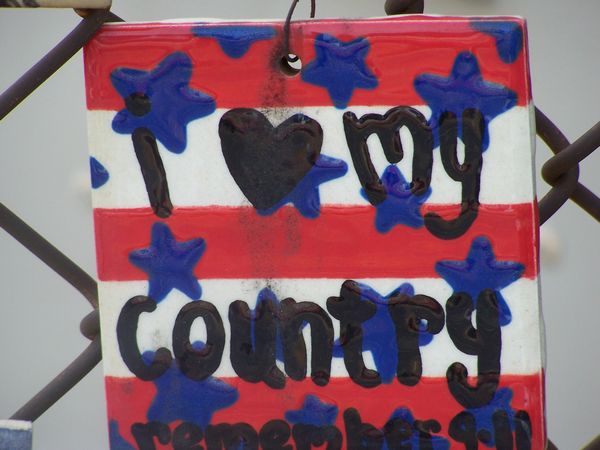 i ♥ my
country
remember 9-11